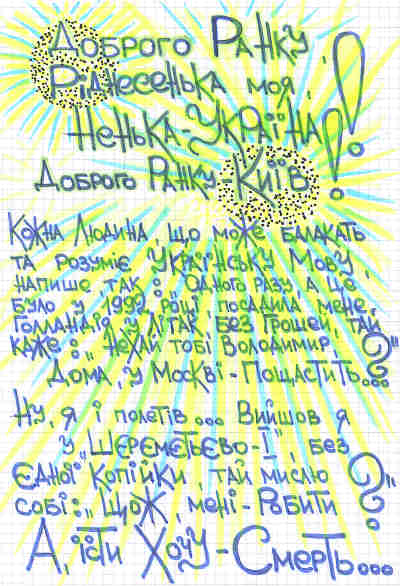 Доброго Ранку,
Ріднесенька моя,
Ненька-Україна!
Доброго Ранку-Київ!
Кожна Людина, що може балакать
та розуміє Українську Мову,
напише так: „Одного разу, а це
було у 1992 році, посадила мене,
Голландія у літак, без Грошей, тай
каже: „Нехай тобі Володимир,
Дома, у Москві-Пощастить...?"
Ну, я і полетів... Вийшов я
у „Шереметьєво-1", без
єдиної копійки, тай мислю
собі: „Що ж мені-Робити?"
А, їсти Хочу-Смерть...